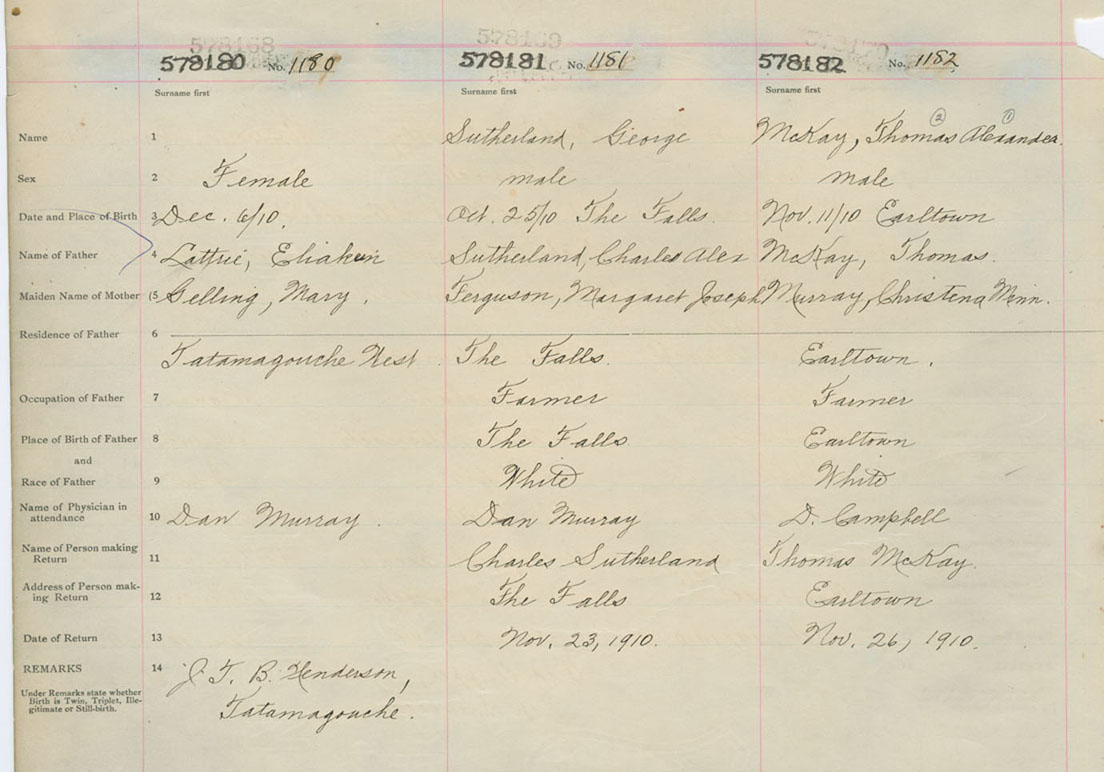 578180 No. 1180 578181 No. 1181 578182 No. 1182
Surname first Surname first Surname first
② ①
Name 1 Sutherland, George McKay, Thomas Alexander.
Sex 2 Female male male
Date and Place of Birth 3 Dec. 6/10. Oct. 25/10 The Falls. Nov. 11/10 Earltown
Name of Father 4 Lattrie, Eliakim Sutherland, Charles Alex McKay, Thomas.
Maiden Name of Mother (5 Gelling, Mary. Ferguson, Margaret Joseph Murray, Christena Minn.
Residence of Father 6
Tatamagouche West. The Falls. Earltown.
Occupation of Father 7 Farmer Farmer
Place of Birth of Father 8 The Falls Earltown
and
Race of Father 9 White White
Name of Physician in
attendance 10 Dan Murray. Dan Murray D. Campbell
Name of Person making
Return 11 Charles Sutherland Thomas McKay.
Address of Person mak-
ing Return 12 The Falls Earltown
Date of Return 13 Nov. 23, 1910. Nov. 26, 1910.
REMARKS 14 J. T. B. Henderson,
Tatamagouche.
Under Remarks state whether
Birth is Twin, Triplet, Ille-
gitimate or Still-birth.